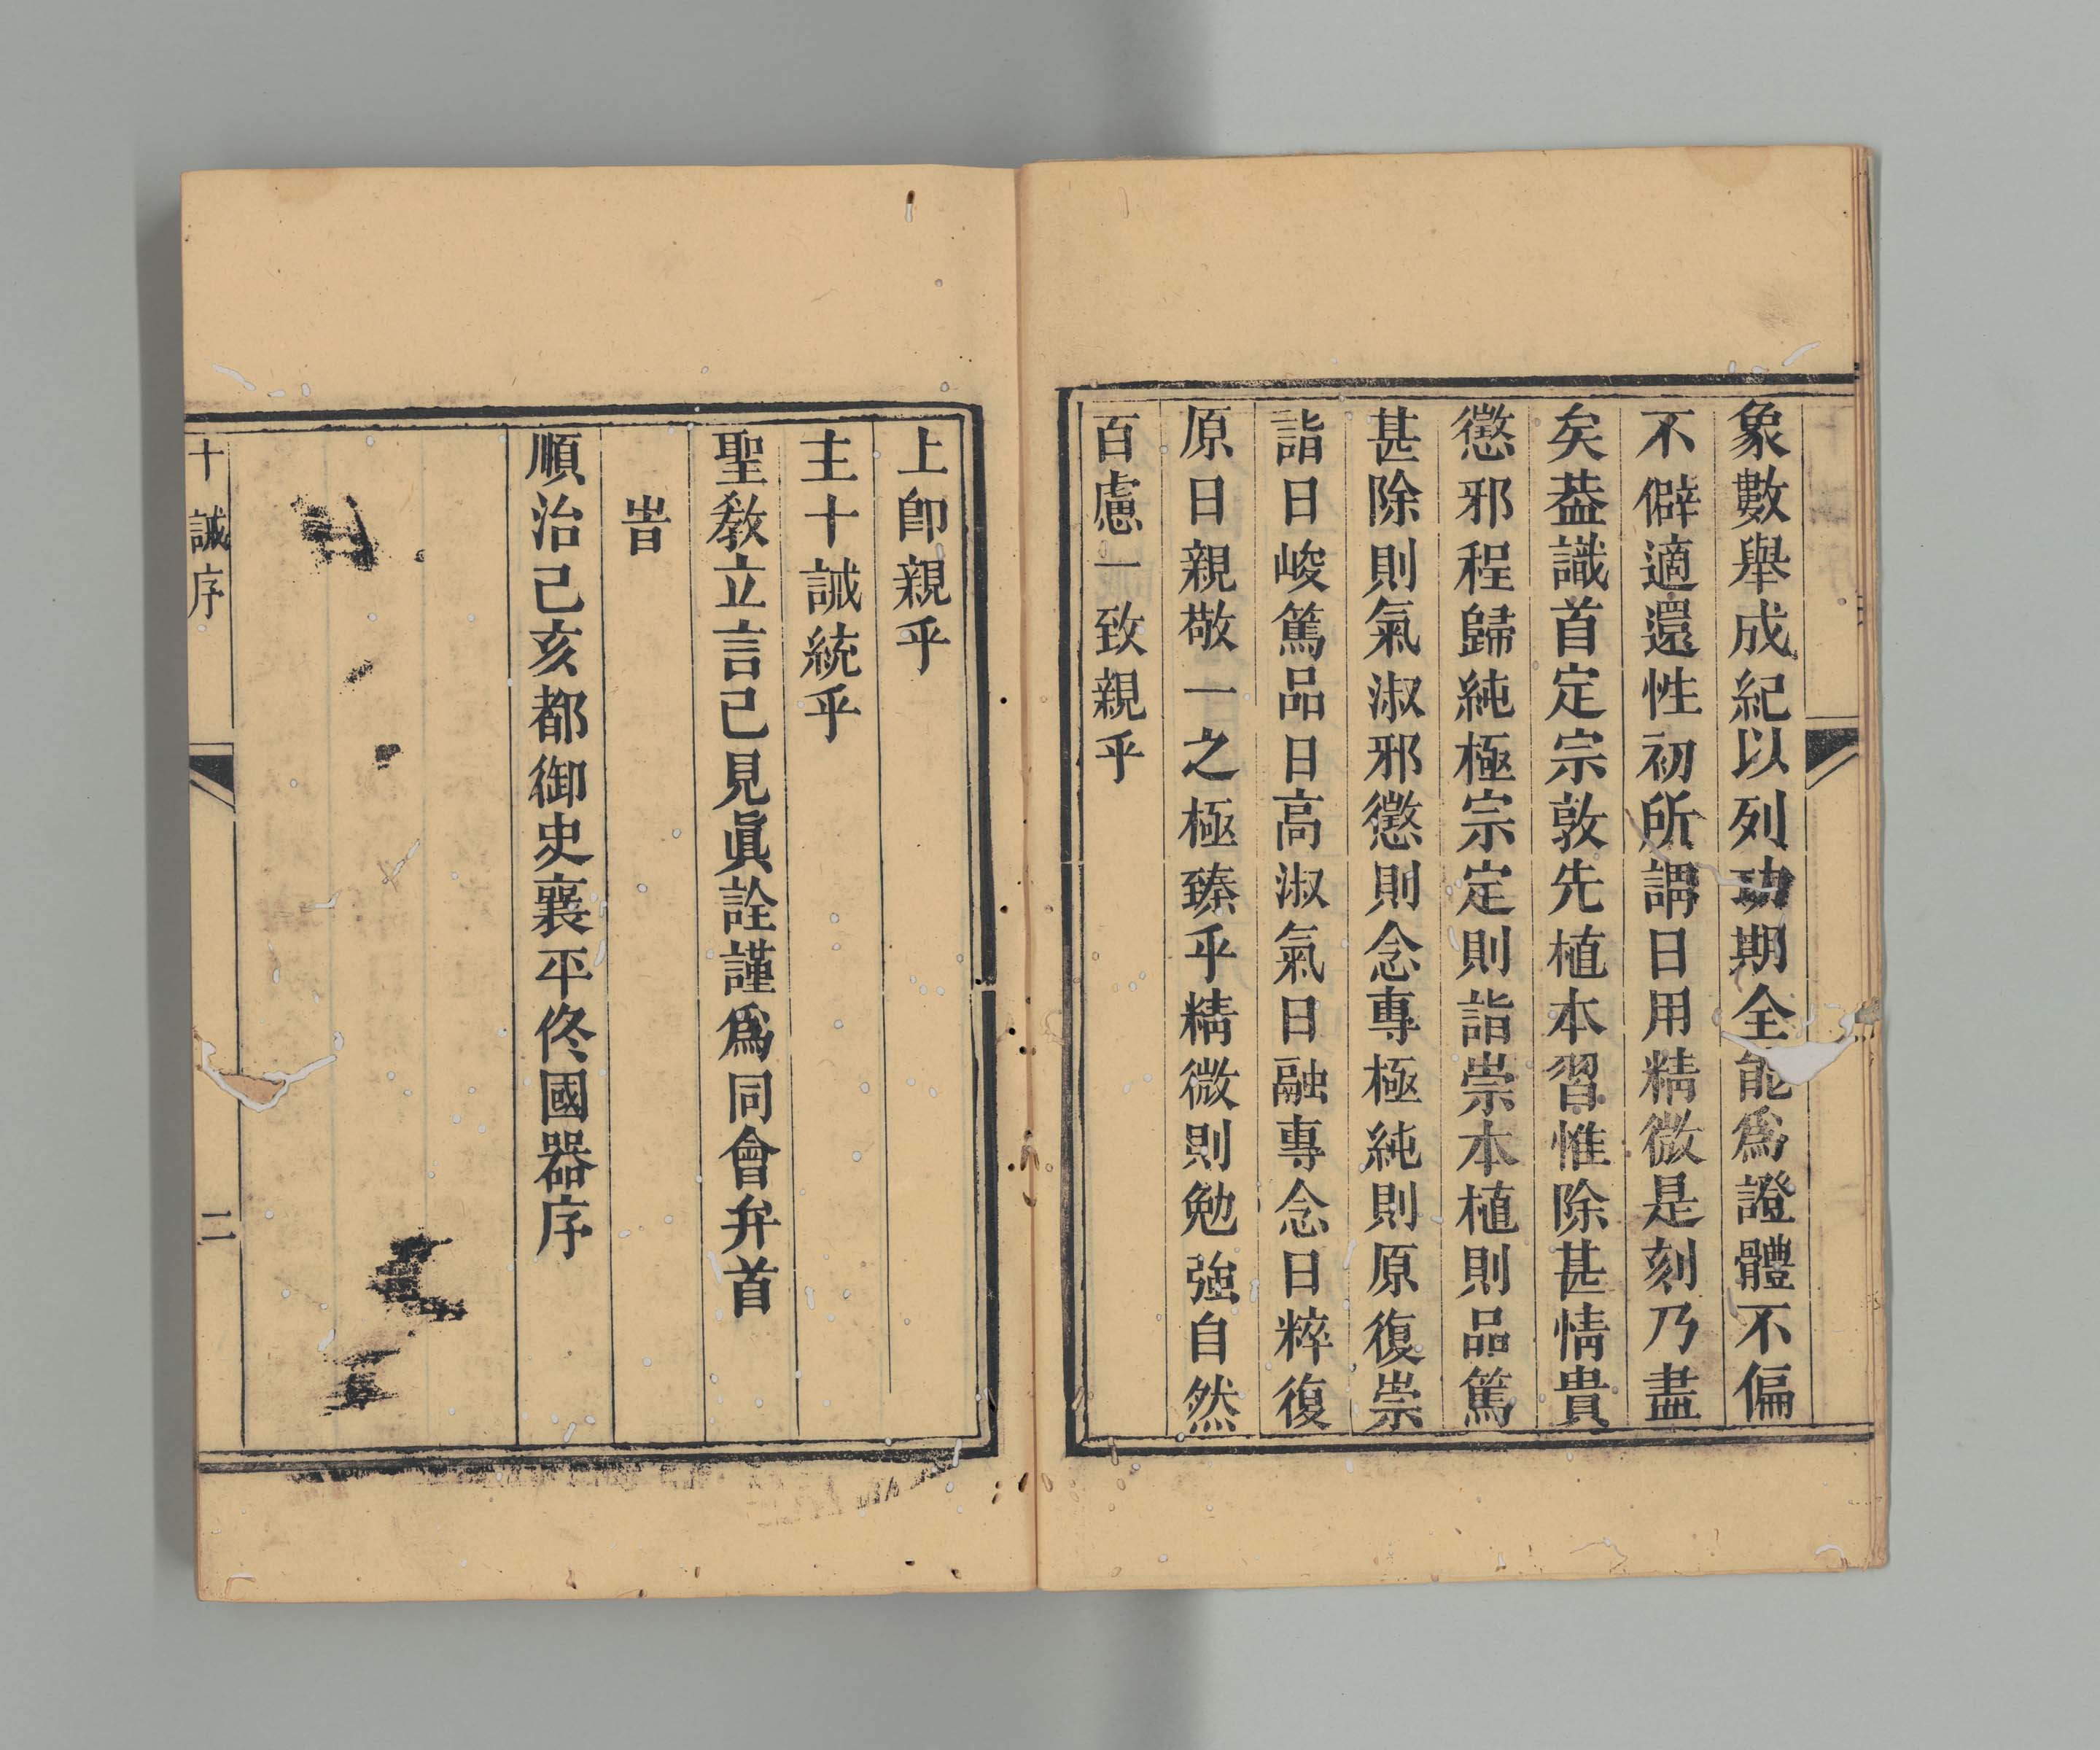 象數舉成紀以列功期全能爲證體不偏
不僻適還性初所謂日用精微是刻乃盡
矣葢識首定宗敦先植本習惟除甚情貴
懲邪程歸純極宗定則詣崇本植則品篤
甚除則氣淑邪懲則念專極純則原復崇
詣日峻篤品日高淑氣日融專念日粹復
原日親敬一之極臻乎精微則勉強自然
百慮一致親乎
上卽親乎
主十誡統乎
聖教立言己見眞詮謹爲同會弁首
旹
順治己亥都御史襄平佟國器序
十誡序
二